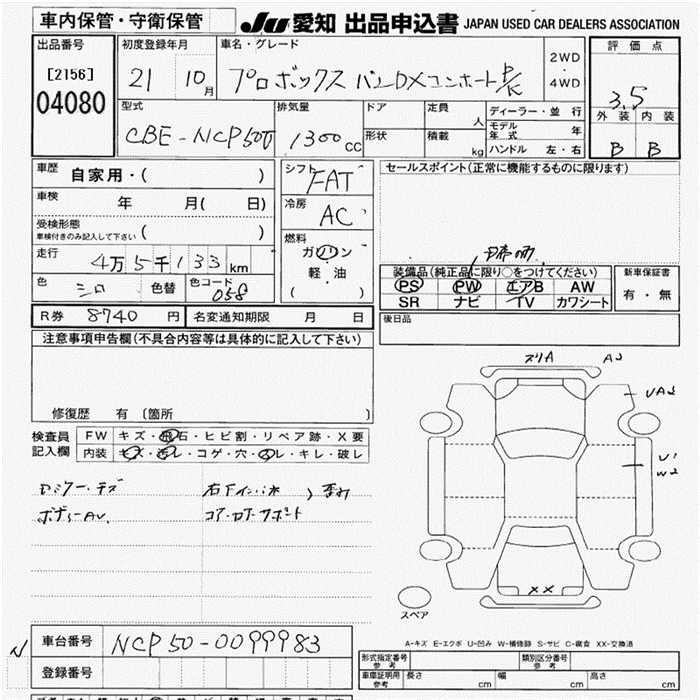 車内保管・守衛保管
JU 愛知 出品申込書 JAPAN USED CAR DEALERS ASSOCIATION
出品番号
[2156]
04080
初度登録年月
21 10月
車名・グレード
プロボックス バンDXコンホート
2WD
・
4WD
評価点
3.5
外装 内装
B B
型式
CBE-NCP50
排気量
1300cc
ドア
形状
定員 人
積載 kg
ディーラー・並行
モデル年式 年
ハンドル 左・右
車歴
自家用・( )
車検
年 月( 日)
受検形態
車検付きのみ記入して下さい ( )
走行
4万5千133km
色
シロ
色替
色コード
058
シフト
FAT
冷房
AC
燃料
ガソリン
軽・油
( )
セールスポイント(正常に機能するものに限ります)
装備品(純正品に限り○をつけてください)
PS PW エアB AW
SR ナビ TV カワシート
新車保証書
有・無
後日品
R券 8740円
名変通知期限 月 日
注意事項申告欄(不具合内容等は具体的に記入して下さい)
修復歴 有 〔箇所 〕
検査員
記入欄
FW キズ・飛石・ヒビ割・リペア跡・X要
内装 キズ・汚レ・コゲ・穴・スレ・キレ・破レ
ボディーAU.
コア・ロアーサポート
スリA AJ
UA3
U1
W2
XX
スペア
A-キズ E-エクボ U-凹み W-補修跡 S-サビ C-腐食 XX-交換済
N
車台番号
NCP50-0099983
登録番号
形式指定番号
参考
類別区分番号
参考
車庫証明用
参考
長さ cm
幅 cm
高さ cm